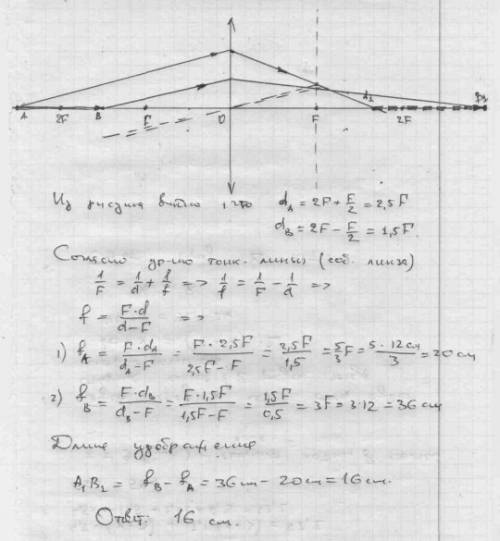 A 2F B F O F A₁ 2F B₁
Из рисунка видно, что d_A = 2F + F/2 = 2,5F
d_B = 2F − F/2 = 1,5F.
Согласно ур-ию тонк. линзы (соб. линза)
1/F = 1/d + 1/f => 1/f = 1/F − 1/d =>
f = F·d/(d−F) =>
1) f_A = F·d_A/(d_A−F) = F·2,5F/(2,5F−F) = 2,5F/1,5 = 5/3 F = 5·12см/3 = 20см
2) f_B = F·d_B/(d_B−F) = F·1,5F/(1,5F−F) = 1,5F/0,5 = 3F = 3·12 = 36 см
Длина изображения
A₁B₂ = f_B − f_A = 36см − 20см = 16см.
Ответ: 16 см.